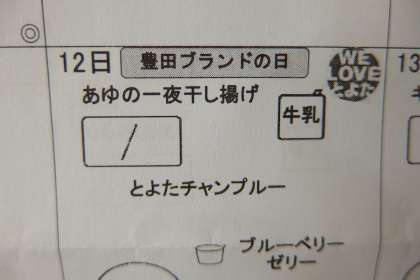 ◎
12日 豊田ブランドの日
WE
LOVE
とよた
13
あゆの一夜干し揚げ
牛乳
/
とよたチャンプルー
ブルーベリー
ゼリー